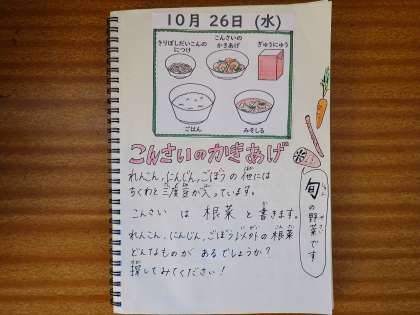 10月 26日 (水)
きりぼしだいこんの
につけ
こんさいの
かきあげ
ぎゅうにゅう
ごはん
みそしる
こんさいのかきあげ
れんこん、にんじん、ごぼうの他には
ちくわと三度豆が入っています。
こんさい は 根菜 と 書きます。
れんこん、にんじん、ごぼう以外の根菜
どんなものが あるでしょうか?
探してみてください!
旬の野菜です